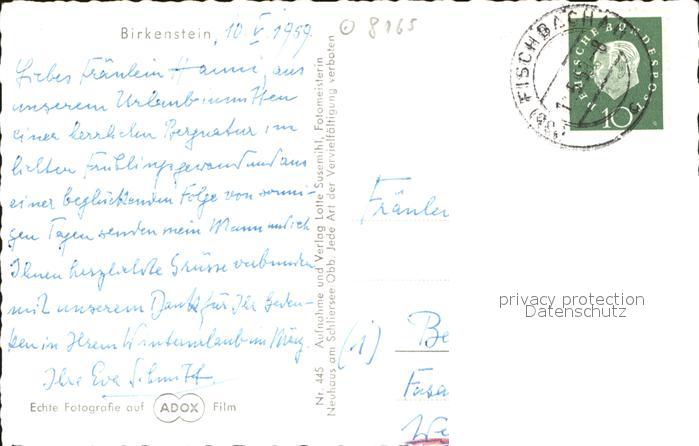 Birkenstein, 10. V. 1959.
8165
Liebes Fräulein Hanni, aus
unserem Urlaub inmitten
einer herrlichen Bergnatur im
lichten Frühlingsgewand und aus
einer beglückenden Folge von sonni-
gen Tagen senden mein Mann und ich
Ihnen herzlichste Grüsse verbunden
mit unserem Dank für Ihr Geden-
ken in Ihrem Winterurlaub im März.
Ihre Eva Schmitt
Echte Fotografie auf ADOX Film
Nr. 445 Aufnahme und Verlag Lotte Susemihl, Fotomeisterin
Neuhaus am Schliersee Obb. Jede Art der Vervielfältigung verboten
FISCHBACHAU
DEUTSCHE BUNDESPOST
10
Fräulei
(1) Be
Fasa
We
privacy protection
Datenschutz